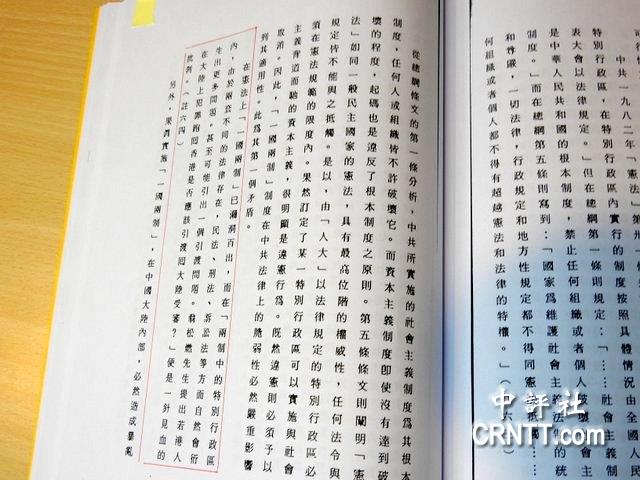 中共一九八二年「憲法」第卅一
特別行政區,在特別行政區內實行的制度按照具體情況由全國人民
表大會以法律規定。」但在總綱第一條則規定:「……社會主義制
是中華人民共和國的根本制度,禁止任何組織或者個人破壞社會主義
制度。」而在總綱第五條則寫到:「國家為維護社會主義法制的統
和尊嚴,一切法律,行政規定和地方性規定都不得同憲法相牴觸……
何組織或者個人都不得有超越憲法和法律的特權。」(註六
從總綱條文的第一條分析,中共所實施的社會主義制度為其根本
制度,任何人或組織皆不許破壞它。而資本主義制度即使沒有達到破
壞的程度,起碼也是違反了根本制度之原則。第五條條文則闡明「憲
法」如同一般民主國家的憲法,具有最高位階的權威性,任何法令與
規定皆不能與之抵觸。是以,由「人大」以法律規定的特別行政區必
須在憲法規範的限度內。果然訂定了某一特別行政區可以實施與社會
主義背道而馳的資本主義,很明顯是違憲行為。既然違憲則必須予以
取消。因此,「一國兩制」制度在中共法律上的脆弱性必然嚴重影響
到其適用性。此為其第一個矛盾。
在憲法上「一國兩制」已漏洞百出,而在「兩制中的特別行政區
內,由於兩套不同的法律存在,民法、刑法、訴訟法等方面自然會衍
生出更多問題。甚至可能引出一個引渡問題。翁松燃先生提出若港人
在大陸上犯罪跑回香港是否應該引渡回大陸受審?」便是一針見血的
批判。(註六四)
另外,果真實施「一國兩制」,在中國大陸內部,必然造成暴亂
中評社
CRNTT.com